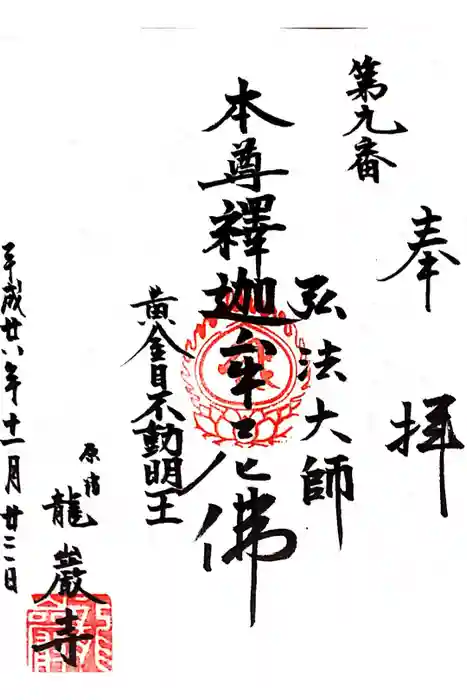 奉拝
第九番
弘法大師
本尊釋迦牟尼佛
黄金目不動明王
原宿
龍巖寺
平成廿六年十一月廿三日